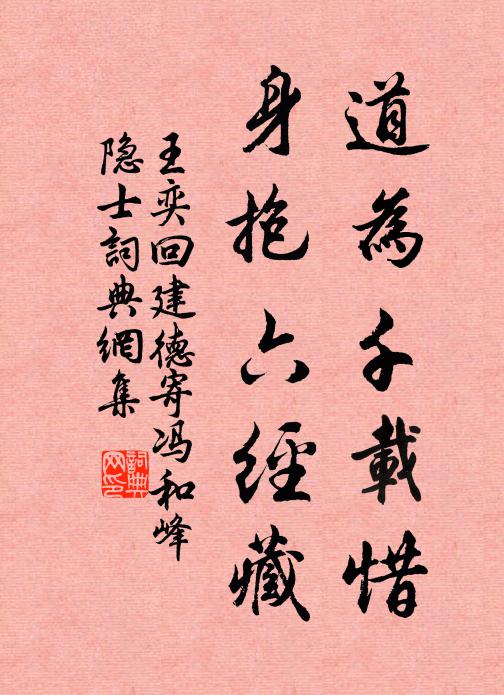 道為千載惜
身抱六經藏
王奕回建德寄冯和峰
隐士詞典網集
詞典網印